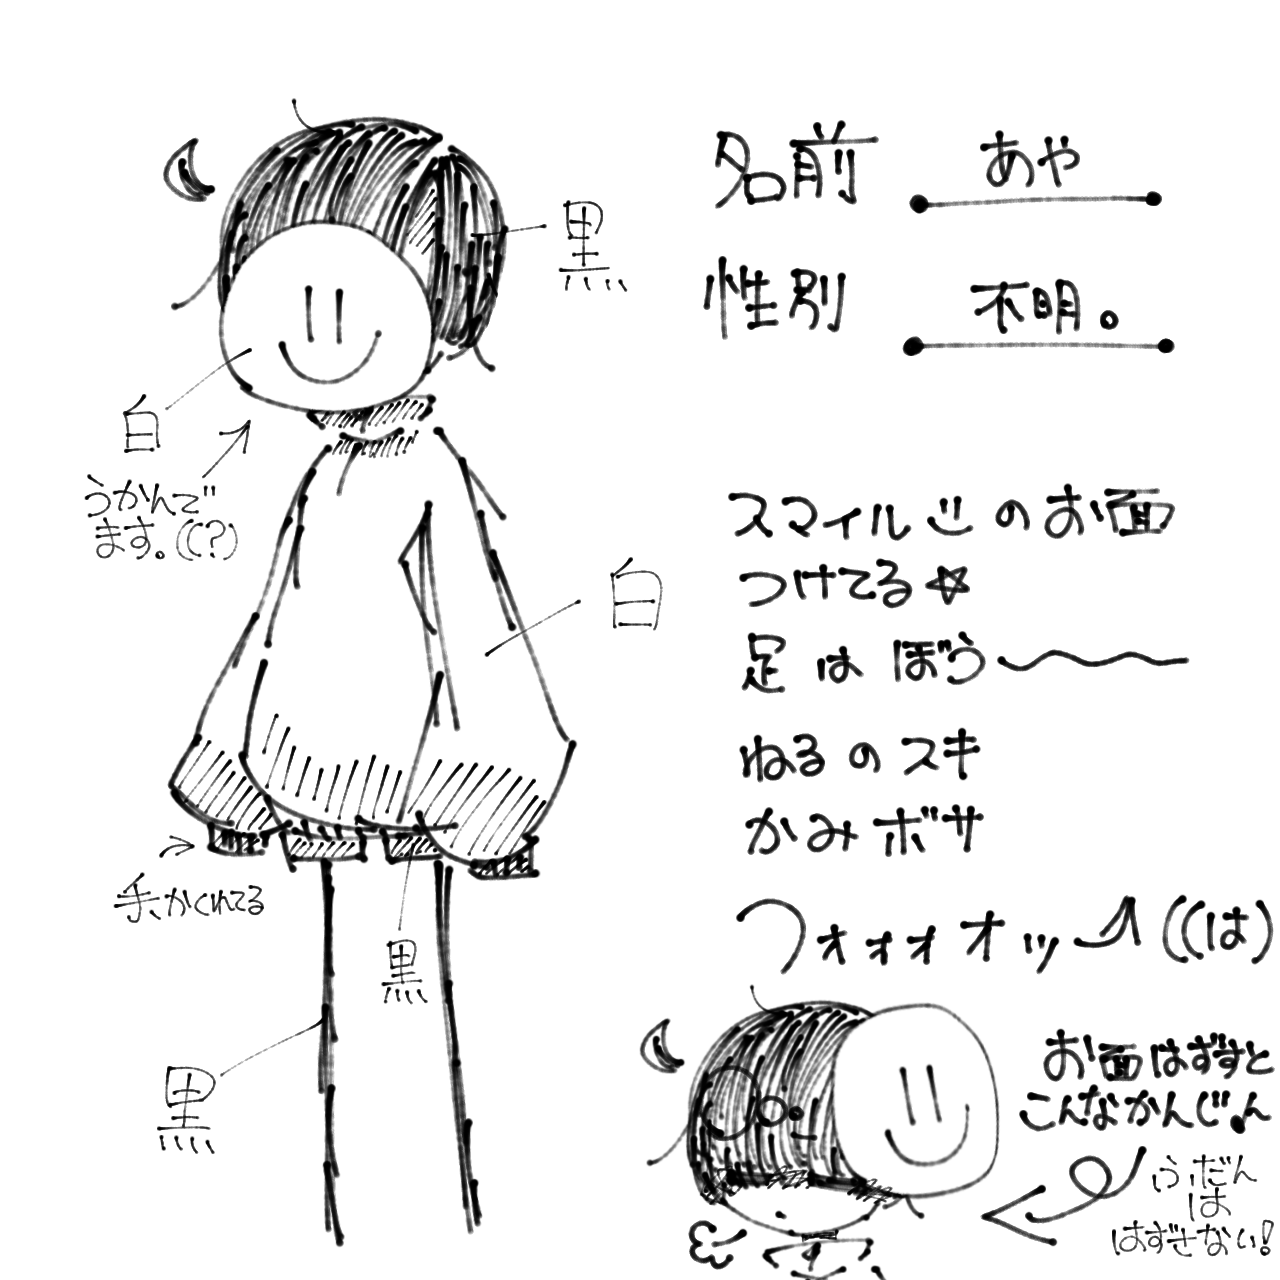 名前 あや
性別 不明。
黒
白
うかんで
ます。((?)
白
スマイルのお面
つけてる☆
足はぼう〜
ねるのスキ
かみボサ
手、かくれてる
黒
黒
フォォォオッ((は)
お面はずすと
こんなかんじ。ん
ふだん
は
はずさない!